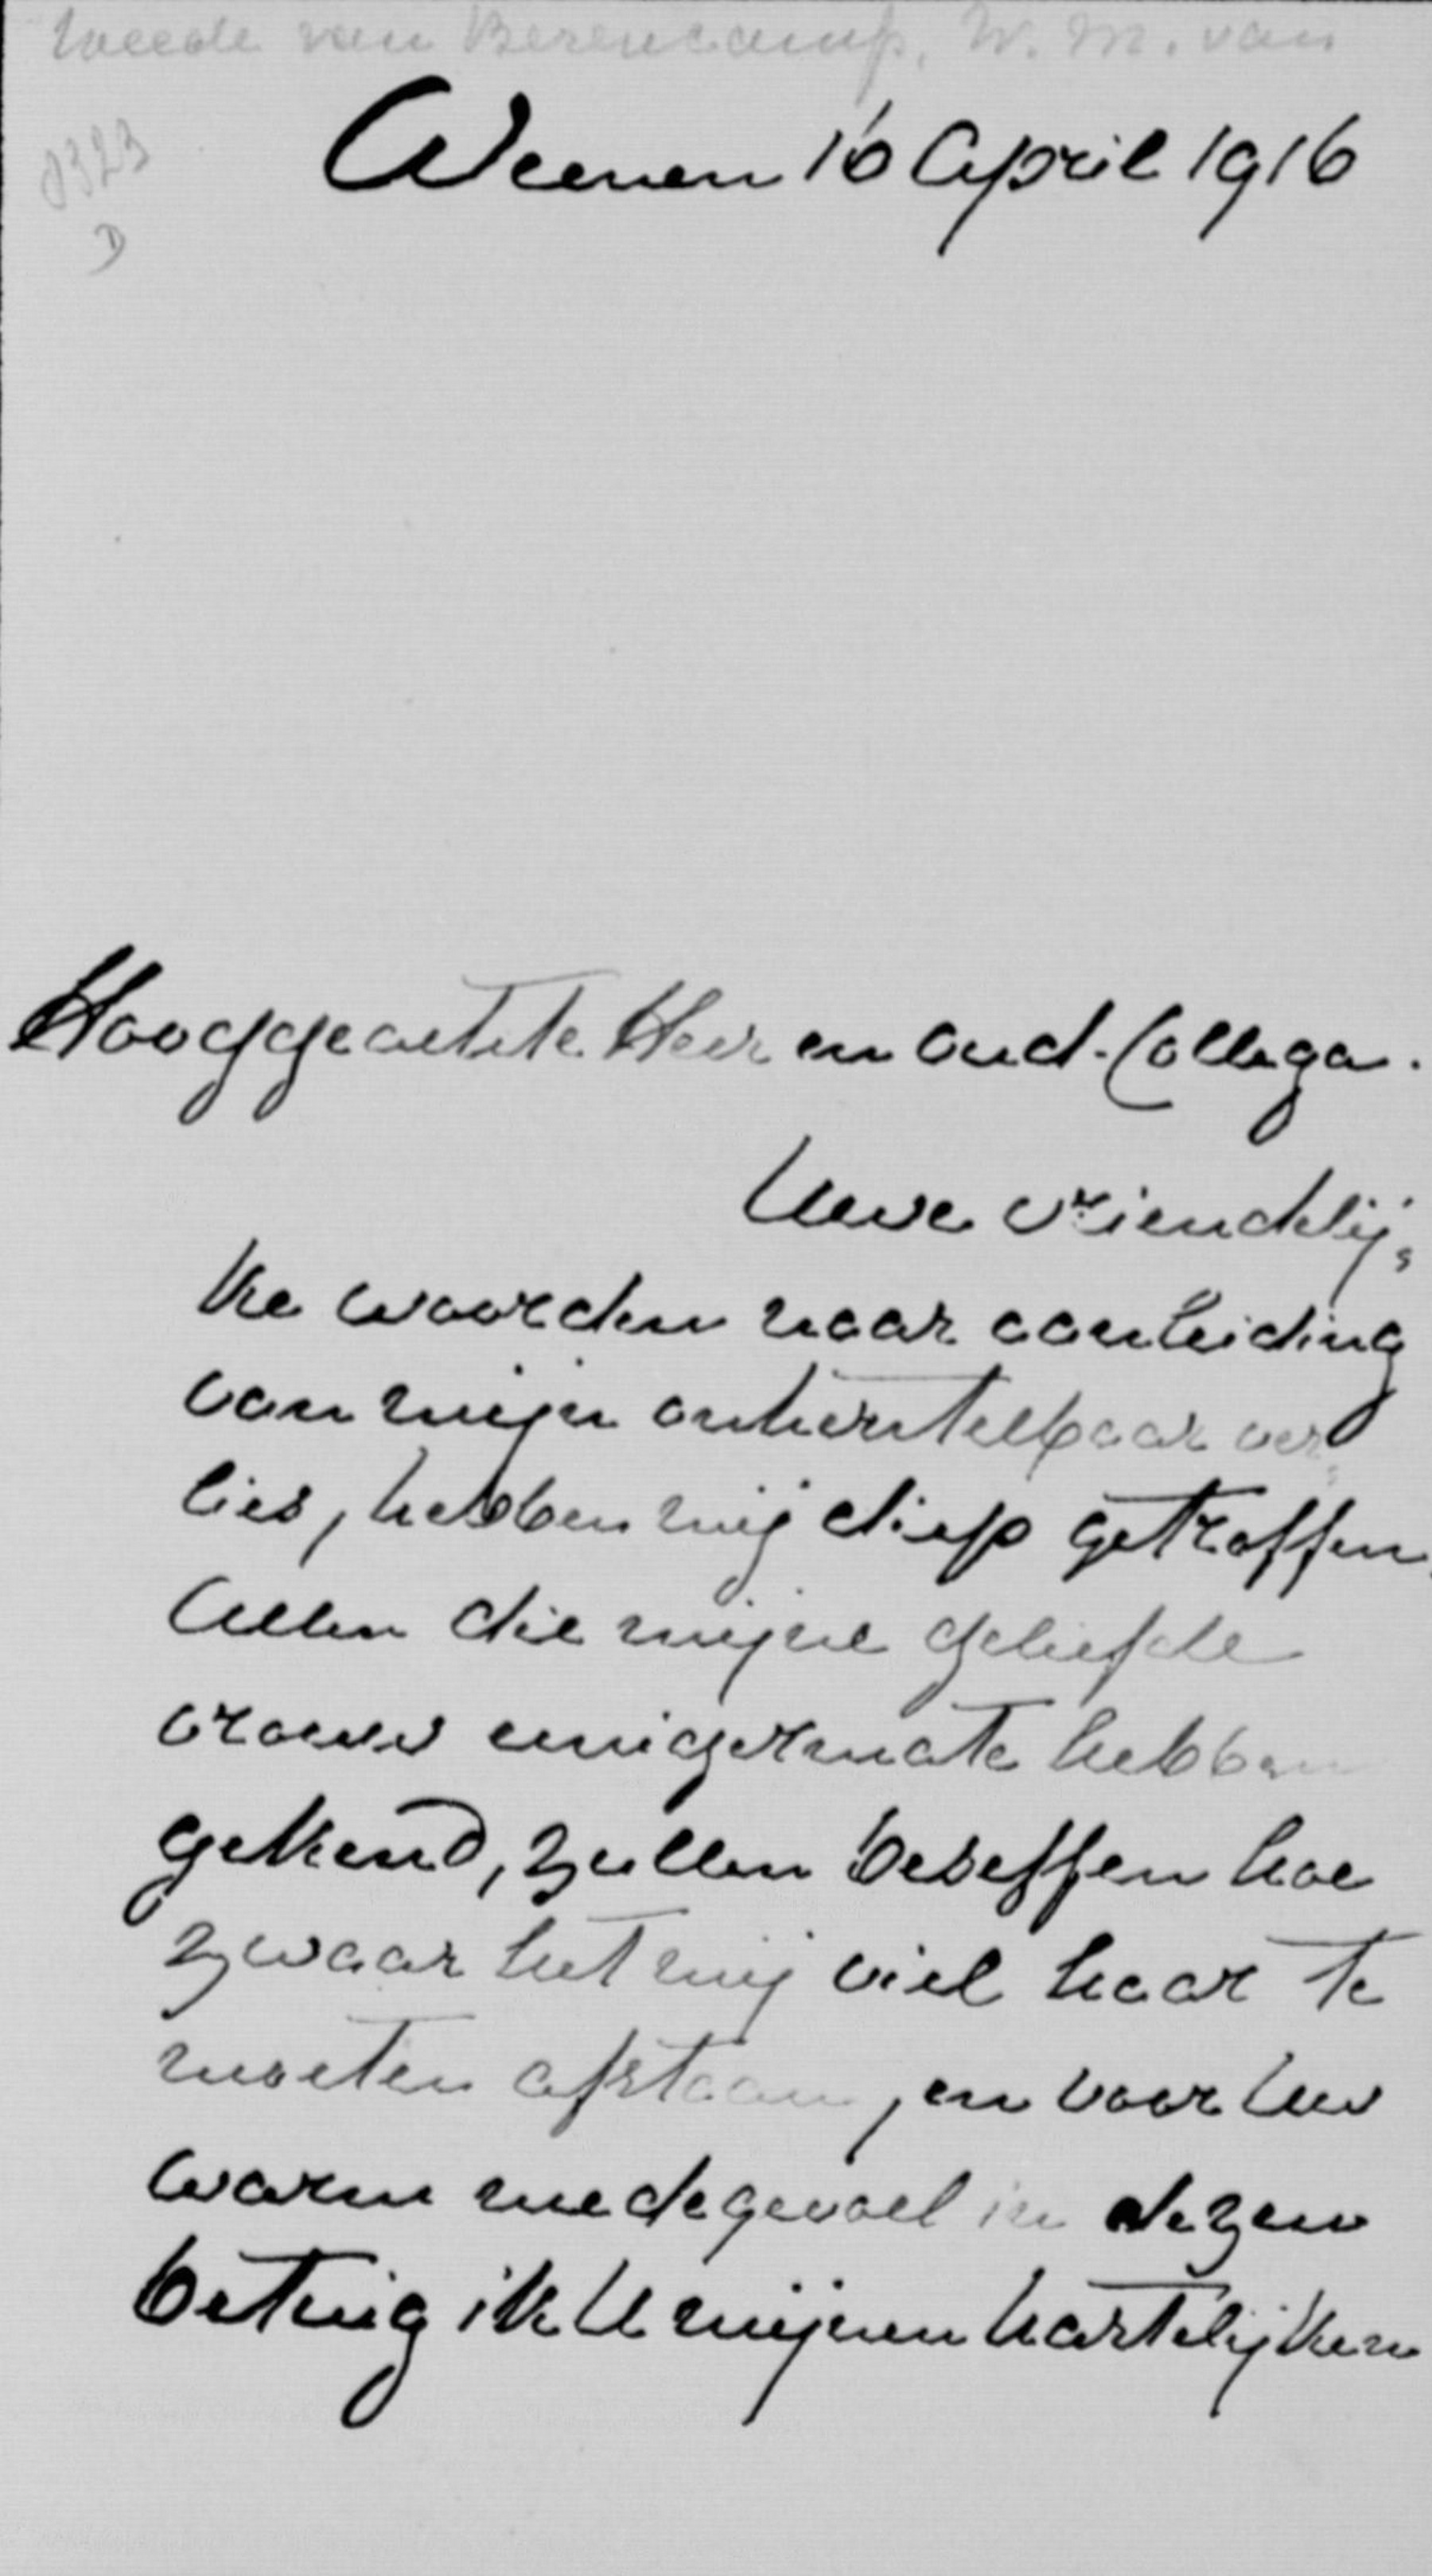 Weede van Berencamp, W. M. van
8323
D
Weenen 16 April 1916
Hooggeachte Heer en Oud-Collega.
Uwe vriendelij„
ke woorden naar aanleiding
van mijn onherstelbaar ver„
lies, hebben mij diep getroffen.
Allen die mijne geliefde
vrouw eenigermate hebben
gekend, zullen beseffen hoe
zwaar het mij viel haar te
moeten afstaan, en voor Uw
warm medegevoel in dezen
betuig ik U mijnen hartelijken